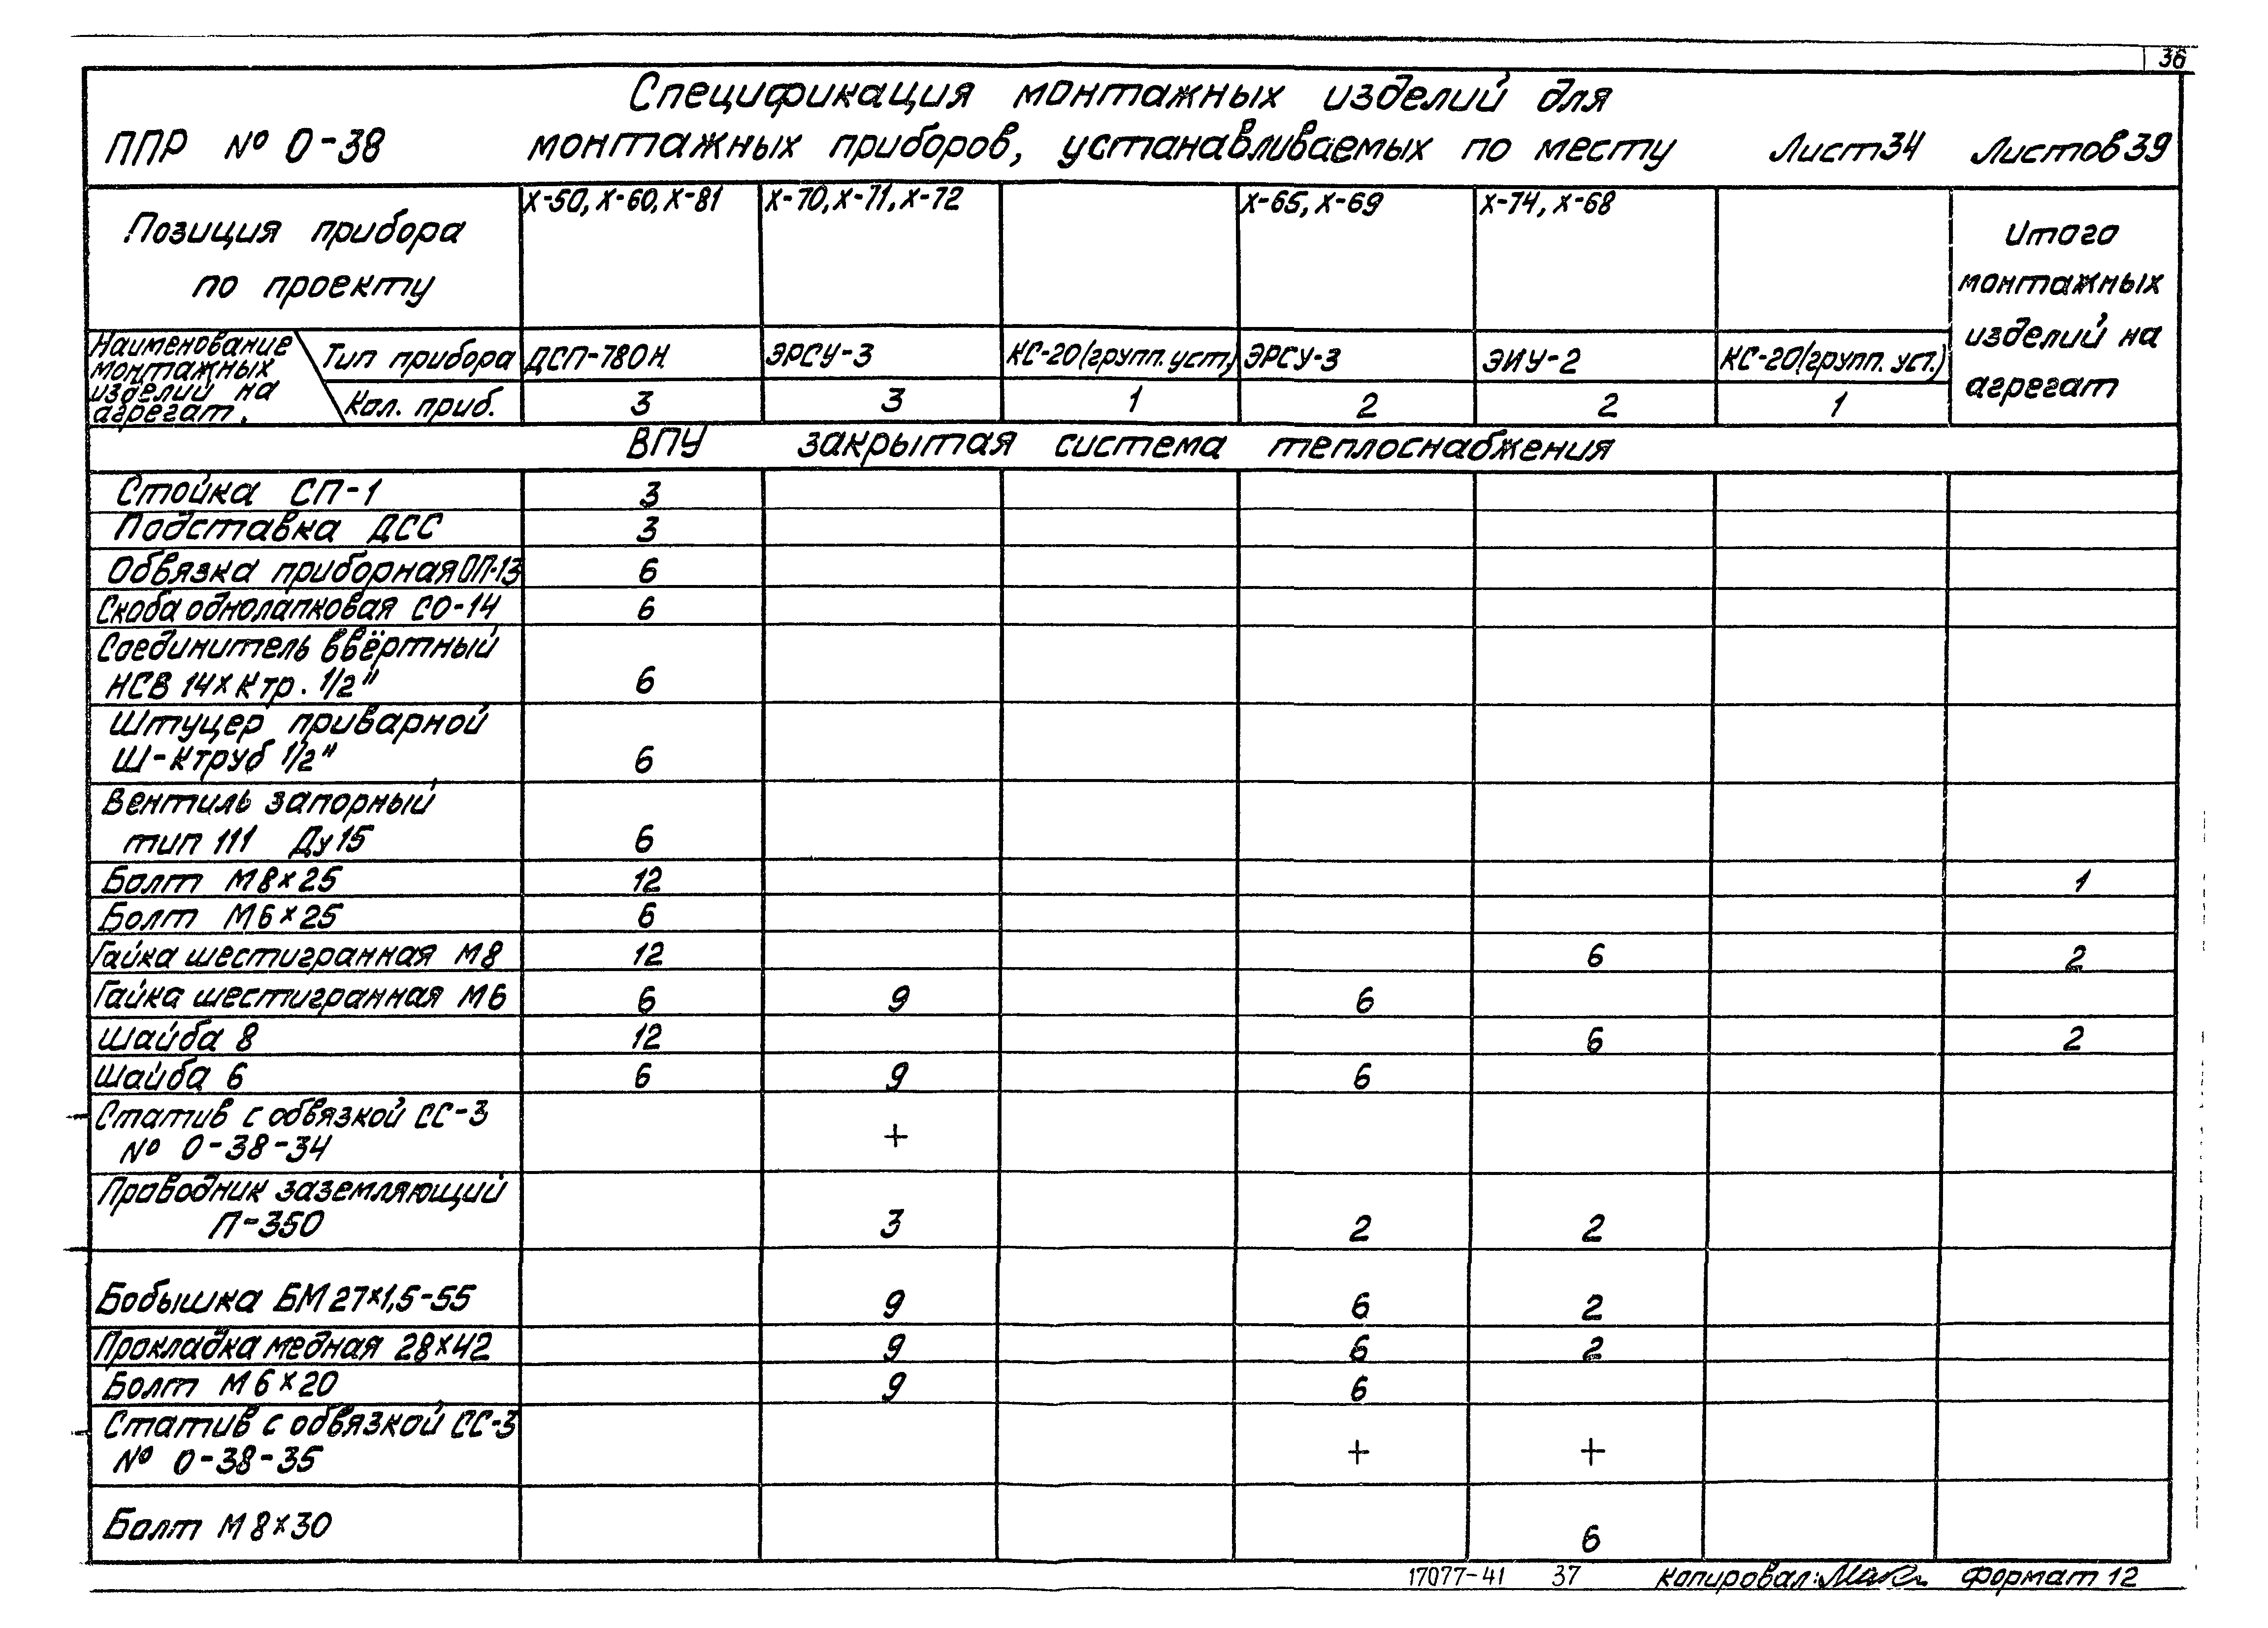 36
Спецификация монтажных изделий для
ППР № 0-38 монтажных приборов, устанавливаемых по месту Лист 34 Листов 39
Позиция прибора по проекту
Х-50, Х-60, Х-81
Х-70, Х-71, Х-72
Х-65, Х-69
Х-74, Х-68
Итого
монтажных
изделий на
агрегат
Наименование
монтажных
изделий на
агрегат.
Тип прибора ДСП-780Н ЭРСУ-3 КС-20(групп. уст.) ЭРСУ-3 ЭИУ-2 КС-20(групп. уст.)
Кол. приб. 3 3 1 2 2 1
ВПУ закрытая система теплоснабжения
Стойка СП-1 3
Подставка ДСС 3
Обвязка приборная ОП-13 6
Скоба однолапковая СО-14 6
Соединитель ввёртный
НСВ 14хКтр. 1/2" 6
Штуцер приварной
Ш-Ктруб 1/2" 6
Вентиль запорный
тип 111 Ду15 6
Болт М8×25 12 1
Болт М6×25 6
Гайка шестигранная М8 12 6 2
Гайка шестигранная М6 6 9 6
Шайба 8 12 6 2
Шайба 6 6 9 6
Статив с обвязкой СС-3
№ 0-38-34 +
Проводник заземляющий
П-350 3 2 2
Бобышка БМ27×1,5-55 9 6 2
Прокладка медная 28×42 9 6 2
Болт М6×20 9 6
Статив с обвязкой СС-3
№ 0-38-35 + +
Болт М8×30 6
17077-41 37 Копировал: Формат 12